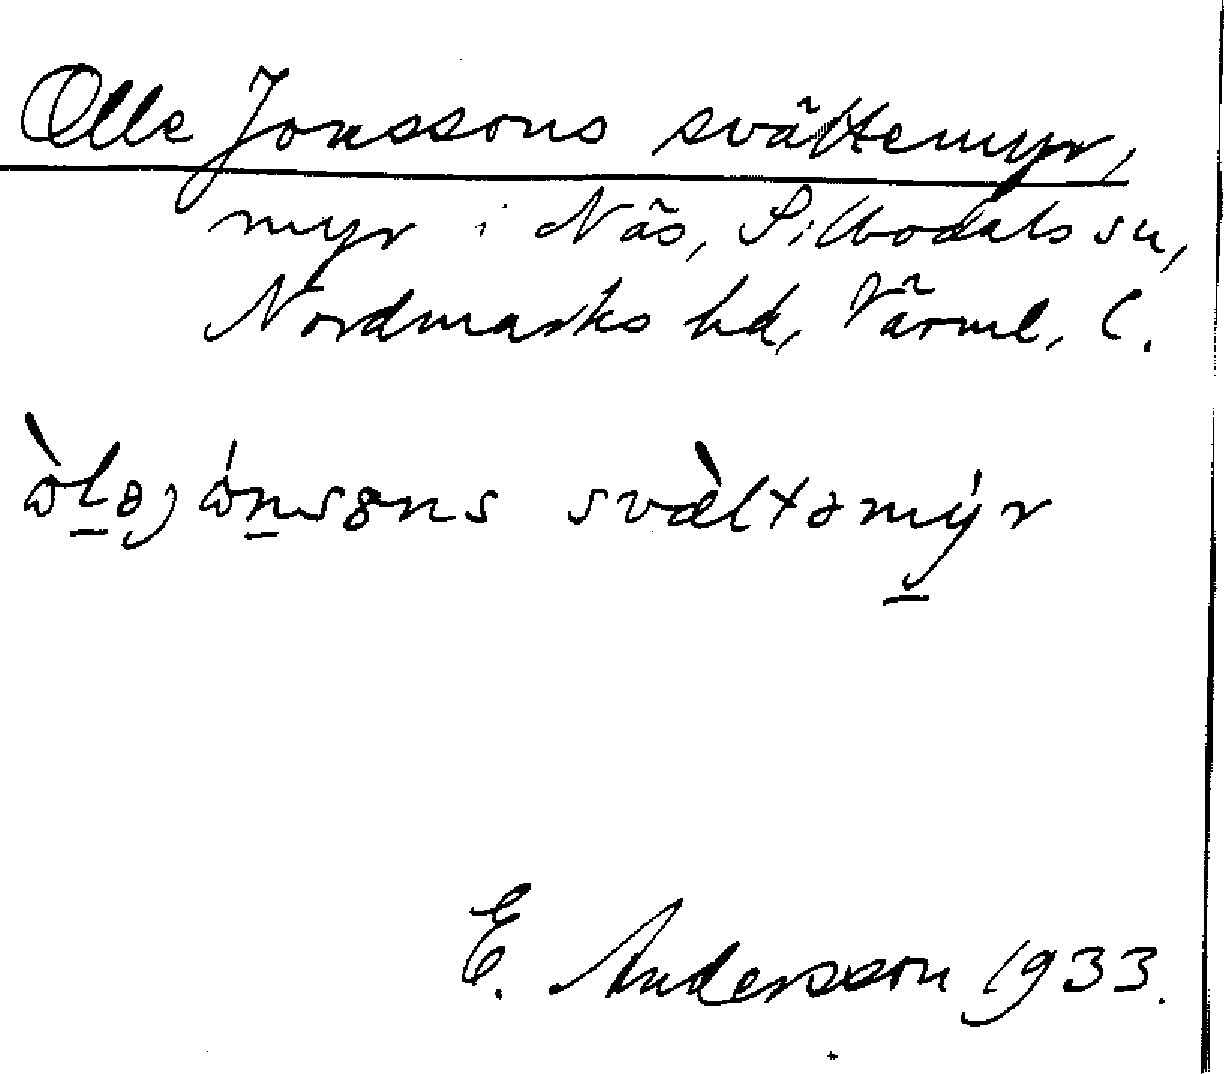 Olle Jonssons svältemyr,
myr i Näs, Silbodals sn,
Nordmarks hd, Värml. l.
òl̠əȷ ón̠sɞns svæ̀ltəmý̠r
E. Andersson 1933.